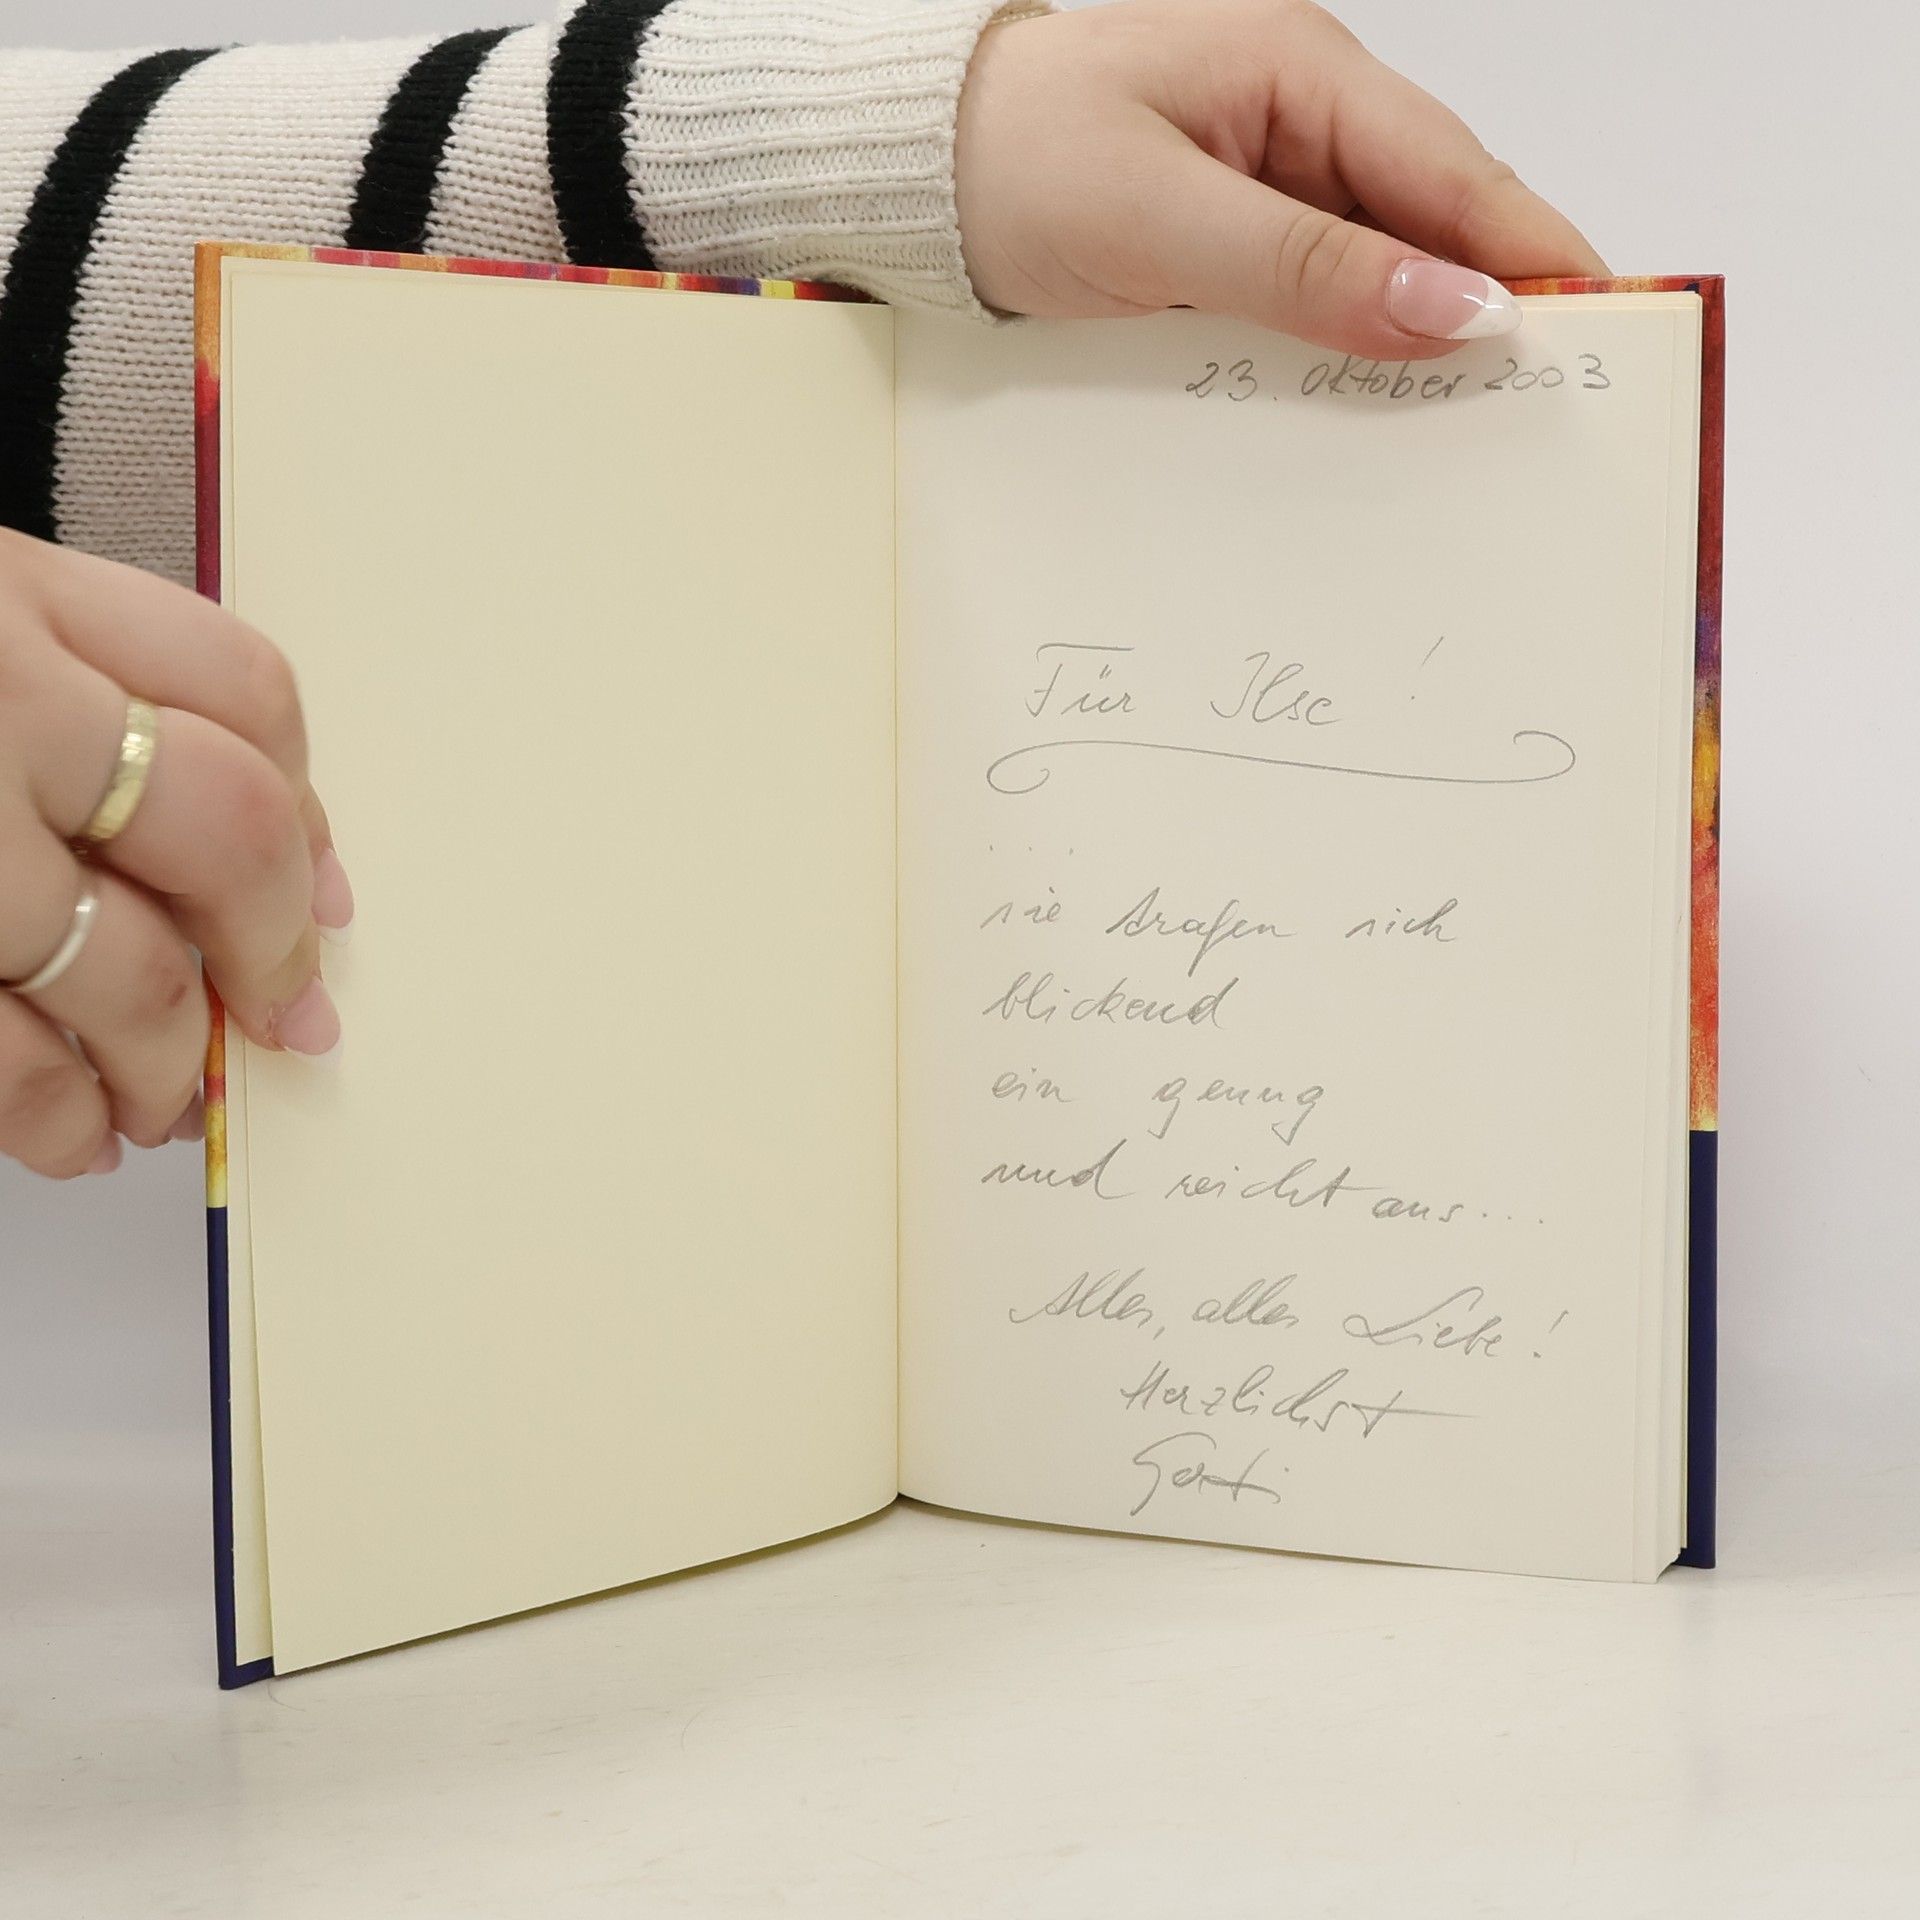 23. Oktober 2003
Für Ilse!
...
sie trafen sich
blickend
ein genug
und reicht aus...
Alles, alles Liebe!
Herzlichst
Gerti